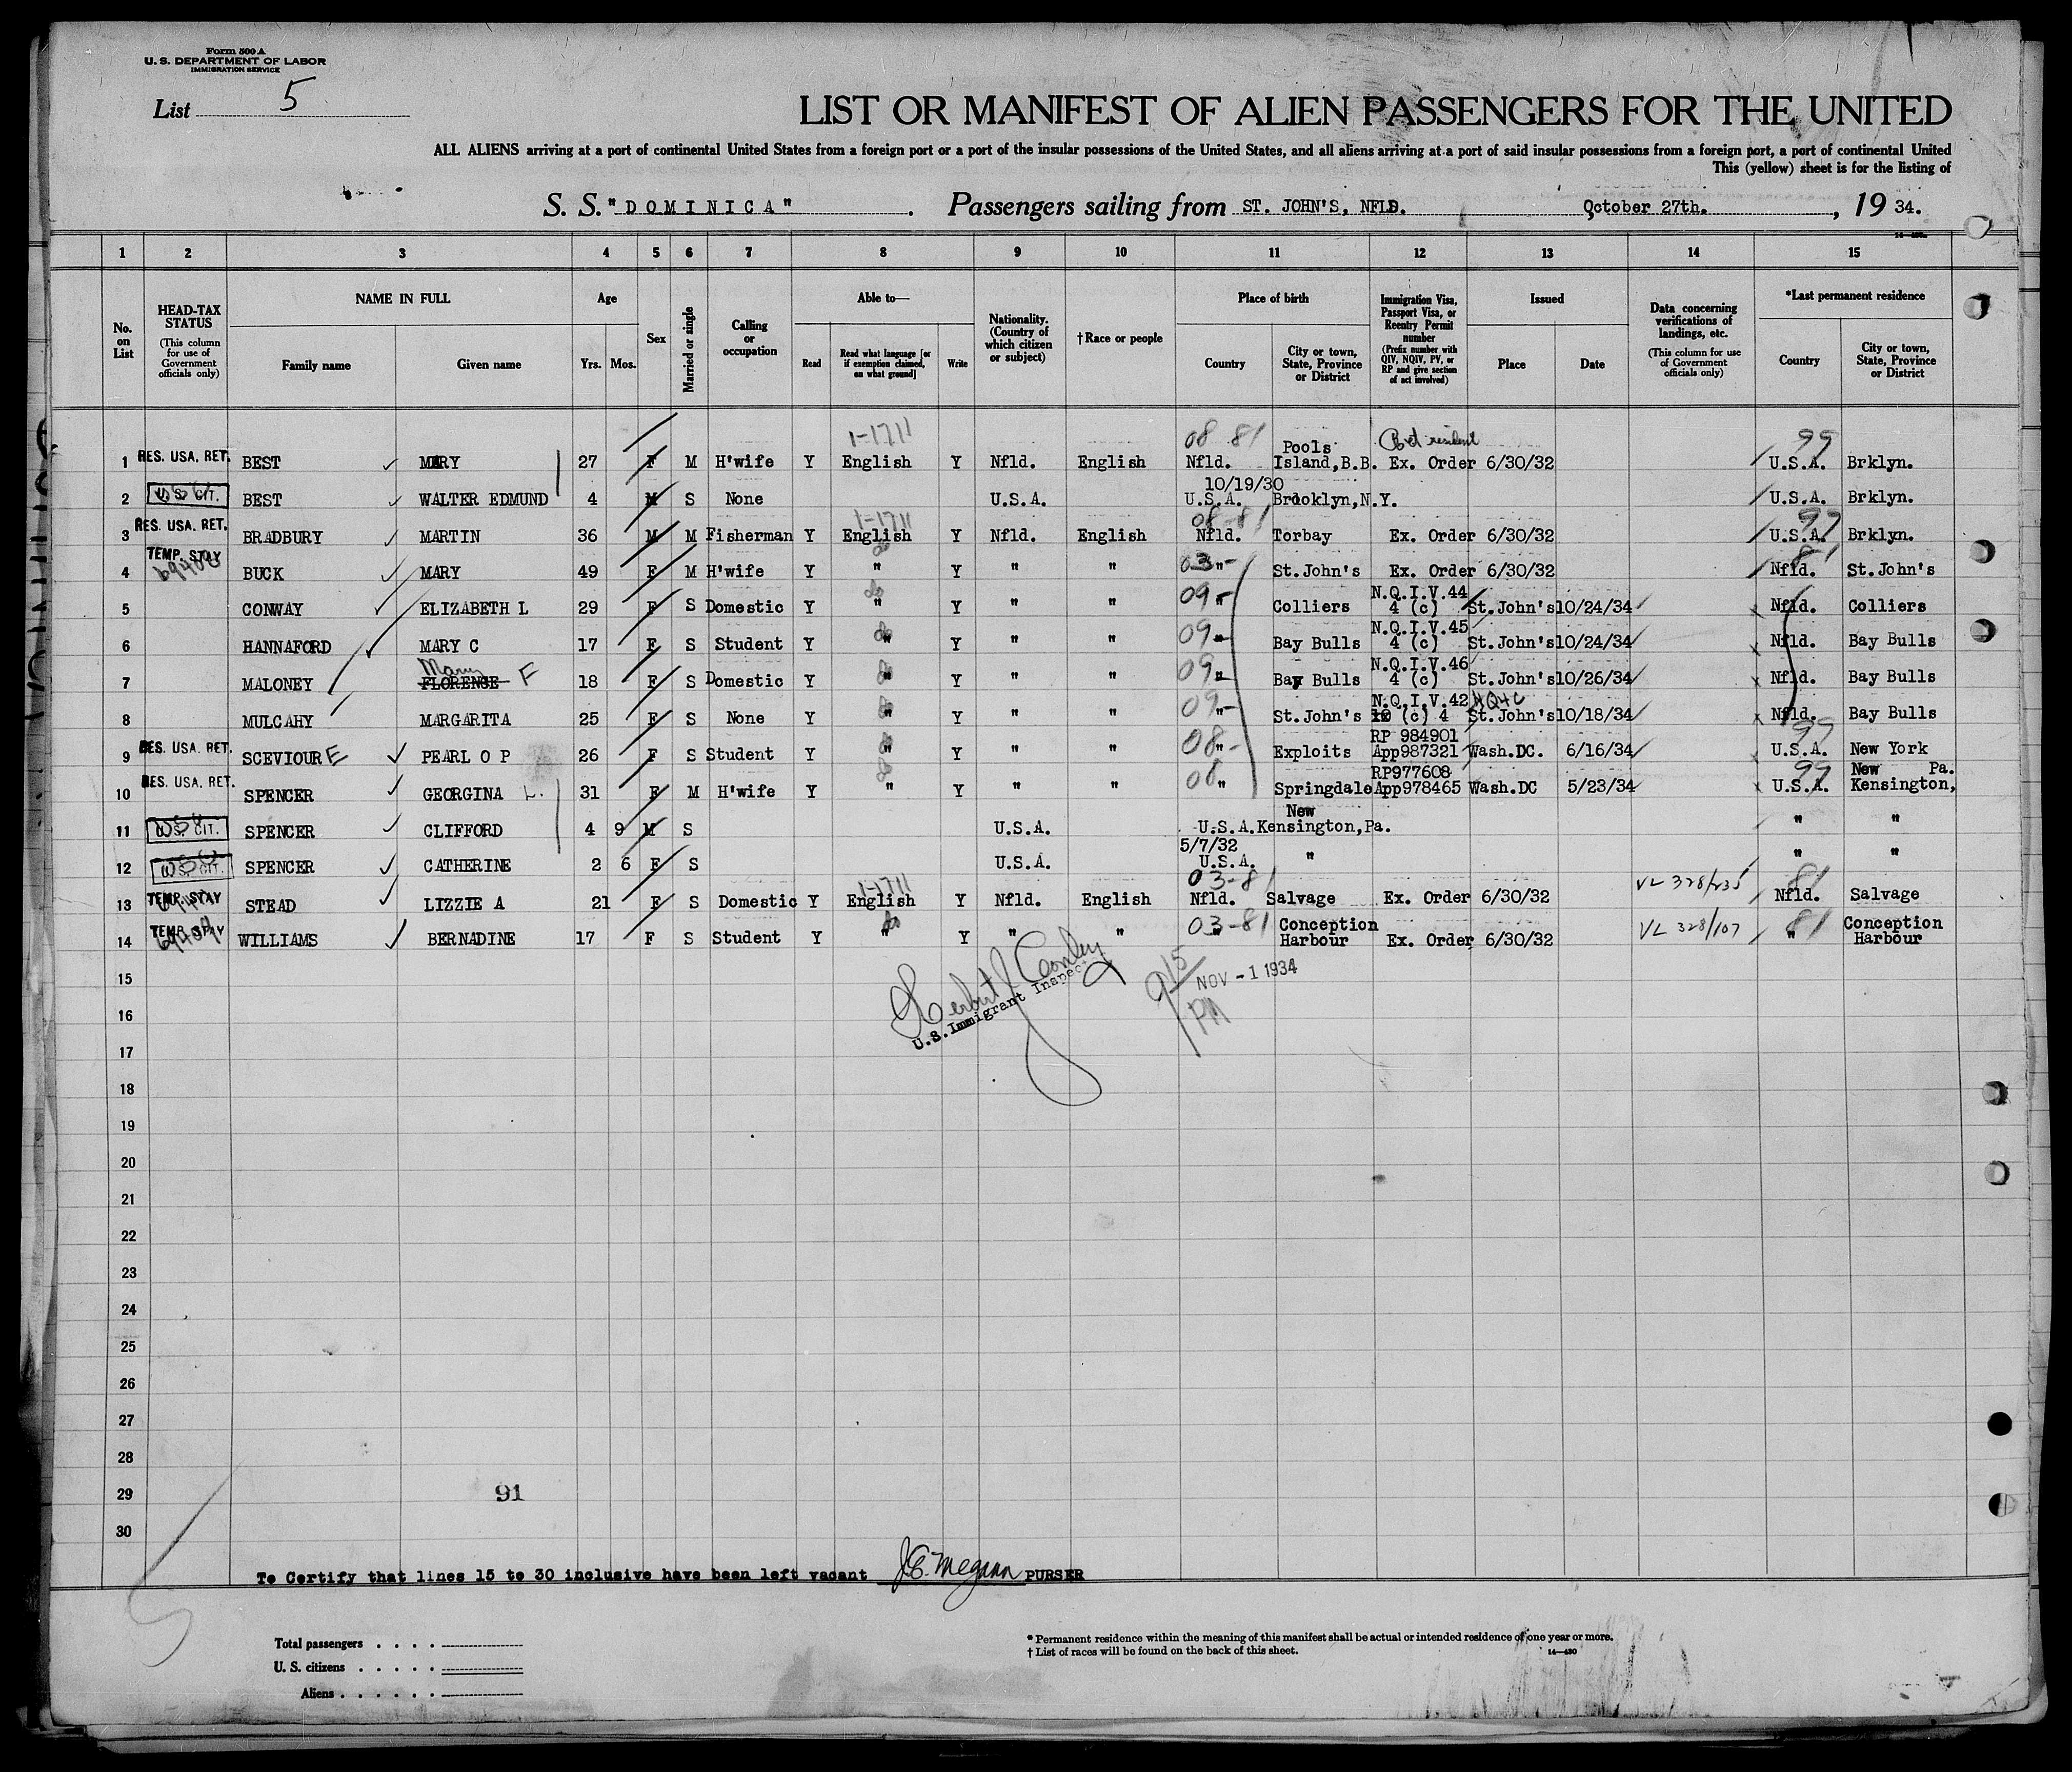 Form 500 A
U. S. DEPARTMENT OF LABOR
IMMIGRATION SERVICE
List 5
LIST OR MANIFEST OF ALIEN PASSENGERS FOR THE UNITED
ALL ALIENS arriving at a port of continental United States from a foreign port or a port of the insular possessions of the United States, and all aliens arriving at a port of said insular possessions from a foreign port, a port of continental United
This (yellow) sheet is for the listing of
S. S. "DOMINICA" . Passengers sailing from ST. JOHN'S, NFLD. October 27th. , 19 34.
1 2 3 4 5 6 7 8 9 10 11 12 13 14 15
No. on List
HEAD-TAX STATUS
(This column for use of Government officials only)
NAME IN FULL
Family name Given name
Age
Yrs. Mos.
Sex
Married or single
Calling or occupation
Able to—
Read Read what language [or if exemption claimed, on what ground] Write
Nationality. (Country of which citizen or subject)
†Race or people
Place of birth
Country City or town, State, Province or District
Immigration Visa, Passport Visa, or Reentry Permit number
(Prefix number with QIV, NQIV, PV, or RP and give section of act involved)
Issued
Place Date
Data concerning verifications of landings, etc.
(This column for use of Government officials only)
*Last permanent residence
Country City or town, State, Province or District
1-1711 08 81 Pools resident 99
1 RES. USA. RET. BEST MARY 27 F M H'wife Y English Y Nfld. English Nfld. Island,B.B. Ex. Order 6/30/32 U.S.A. Brklyn.
10/19/30
2 U.S. CIT. BEST WALTER EDMUND 4 M S None U.S.A. U.S.A. Brooklyn,N.Y. U.S.A. Brklyn.
1-1711 08-81 99
3 RES. USA. RET. BRADBURY MARTIN 36 M M Fisherman Y English Y Nfld. English Nfld. Torbay Ex. Order 6/30/32 U.S.A. Brklyn.
do 81
4 TEMP. STAY BUCK MARY 49 F M H'wife Y " Y " " 03 " - St.John's Ex. Order 6/30/32 Nfld. St.John's
do N.Q.I.V.44
5 CONWAY ELIZABETH L 29 F S Domestic Y " Y " " 09 " - Colliers 4 (c) St.John's 10/24/34 Nfld. Colliers
do N.Q.I.V.45
6 HANNAFORD MARY C 17 F S Student Y " Y " " 09 " - Bay Bulls 4 (c) St.John's 10/24/34 Nfld. Bay Bulls
Mary do N.Q.I.V.46
7 MALONEY FLORENSE F 18 F S Domestic Y " Y " " 09 " - Bay Bulls 4 (c) St.John's 10/26/34 Nfld. Bay Bulls
do N.Q.I.V.42
8 MULCAHY MARGARITA 25 F S None Y " Y " " 09 " - St.John's (c) 4 St.John's 10/18/34 Nfld. Bay Bulls
do RP 984901 99
9 RES. USA. RET. SCEVIOURE PEARL O P 26 F S Student Y " Y " " 08 " - Exploits App987321 Wash.DC. 6/16/34 U.S.A. New York
do RP977608 99 New Pa.
10 RES. USA. RET. SPENCER GEORGINA L. 31 F M H'wife Y " Y " " 08 " Springdale App978465 Wash.DC 5/23/34 U.S.A. Kensington,
New
11 U.S. CIT. SPENCER CLIFFORD 4 9 M S U.S.A. U.S.A. Kensington,Pa. " "
5/7/32
12 U.S. CIT. SPENCER CATHERINE 2 6 F S U.S.A. U.S.A. " " "
1-1711 03-81 VL 328/235 81
13 TEMP. STAY STEAD LIZZIE A 21 F S Domestic Y English Y Nfld. English Nfld. Salvage Ex. Order 6/30/32 Nfld. Salvage
do 03-81 Conception VL 328/107 81 Conception
14 TEMP. STAY WILLIAMS BERNADINE 17 F S Student Y " Y " " " Harbour Ex. Order 6/30/32 " Harbour
U.S. Immigrant Inspector
9 15 PM
NOV - 1 1934
15
16
17
18
19
20
21
22
23
24
25
26
27
28
29
91
30
To Certify that lines 15 to 30 inclusive have been left vacant J.E. Megann PURSER
Total passengers . . . .
U. S. citizens . . . . .
Aliens . . . . . .
* Permanent residence within the meaning of this manifest shall be actual or intended residence of one year or more.
† List of races will be found on the back of this sheet.
14—430